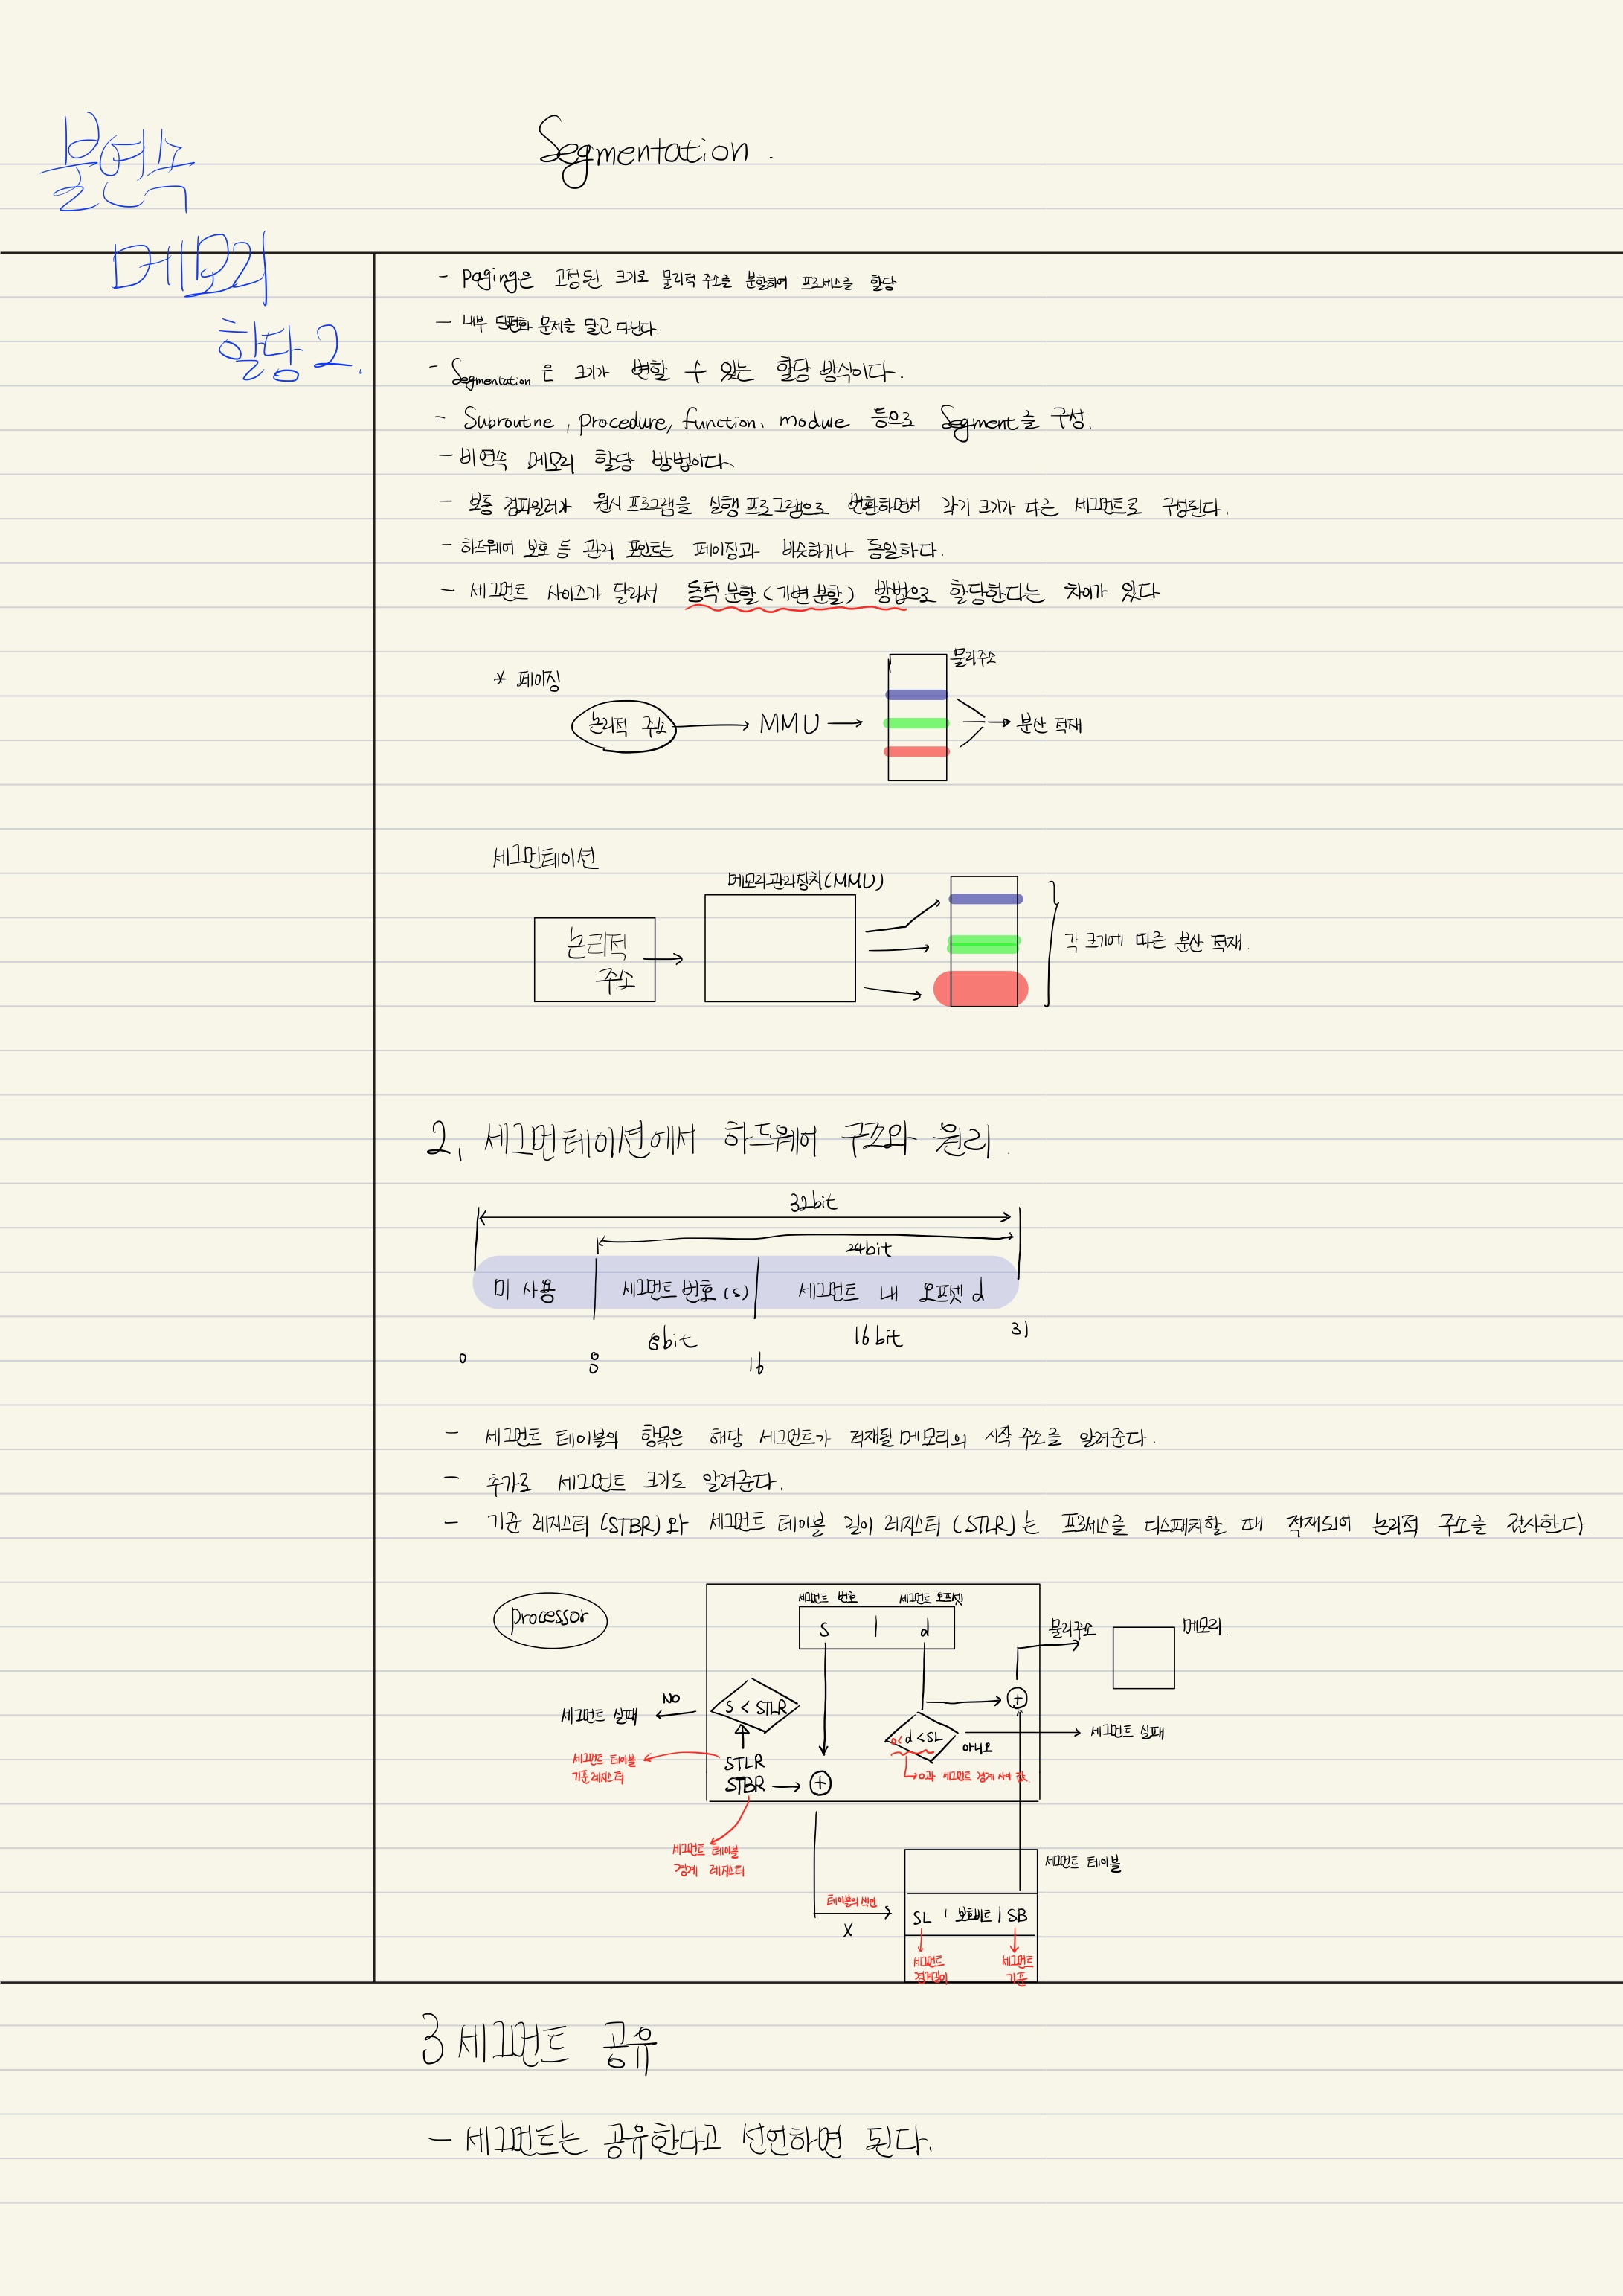 불연속
메모리
할당 2.
Segmentation.
- Paging은 고정된 크기로 물리적 주소를 분할하여 프로세스를 할당
- 내부 단편화 문제를 달고 다닌다.
- Segmentation은 크기가 변할 수 있는 할당 방식이다.
- Subroutine, procedure, function, module 등으로 Segment를 구성.
- 비연속 메모리 할당 방법이다
- 보통 컴파일러가 원시 프로그램을 실행 프로그램으로 변환하면서 각기 크기가 다른 세그먼트로 구성된다.
- 하드웨어 보호 등 관리 포인트는 페이징과 비슷하거나 동일하다.
- 세그먼트 사이즈가 달라서 동적 분할(가변 분할) 방법으로 할당한다는 차이가 있다
* 페이징
물리주소
논리적 주소
MMU
분산 적재
세그먼테이션
메모리관리장치(MMU)
논리적
주소
각 크기에 따른 분산 적재.
2. 세그먼테이션에서 하드웨어 구조와 원리.
32bit
24bit
미 사용
세그먼트 번호(s)
세그먼트 내 오프셋 d
8bit
16bit
0
8
16
31
- 세그먼트 테이블의 항목은 해당 세그먼트가 적재될 메모리의 시작 주소를 알려준다.
- 추가로 세그먼트 크기도 알려준다.
- 기준 레지스터(STBR)와 세그먼트 테이블 길이 레지스터(STLR)는 프로세스를 디스패치할 때 적재되어 논리적 주소를 검사한다.
processor
세그먼트 번호
세그먼트 오프셋
s | d
물리주소
메모리.
s < STLR
NO
세그먼트 실패
+
0< d < SL
아니오
세그먼트 실패
0과 세그먼트 경계 사이 값.
세그먼트 테이블
기준레지스터
STLR
STBR
+
세그먼트 테이블
경계 레지스터
세그먼트 테이블
테이블의
X
SL | 보호비트 | SB
세그먼트
세그먼트
기준
3 세그먼트 공유
- 세그먼트는 공유한다고 선언하면 된다.